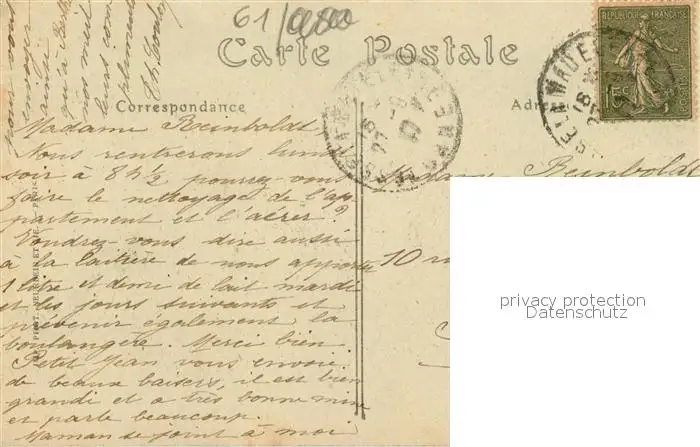 61/0800
Carte Postale
RÉPUBLIQUE FRANÇAISE
15c
POSTES
Correspondance
Adres
Madame Reinboldt,
Nous rentrerons lundi
soir à 8h½ pourrez-vous
faire le nettoyage de l'ap-
partement et l'aérer?
Voudrez-vous dire aussi
à la laitière de nous apporter
1 litre et demi de lait mardi
et les jours suivants et
prévenir également la
boulangère. Merci bien.
Petit Jean vous envoie
de beaux baisers, il est bien
grandi et a très bonne mine
et parle beaucoup.
Maman se joint à moi
pour vous
envoyer
ainsi
qu'à Berthe
nos meil
leurs com
pliments
Madame Reinboldt
10 ru
privacy protection
Datenschutz